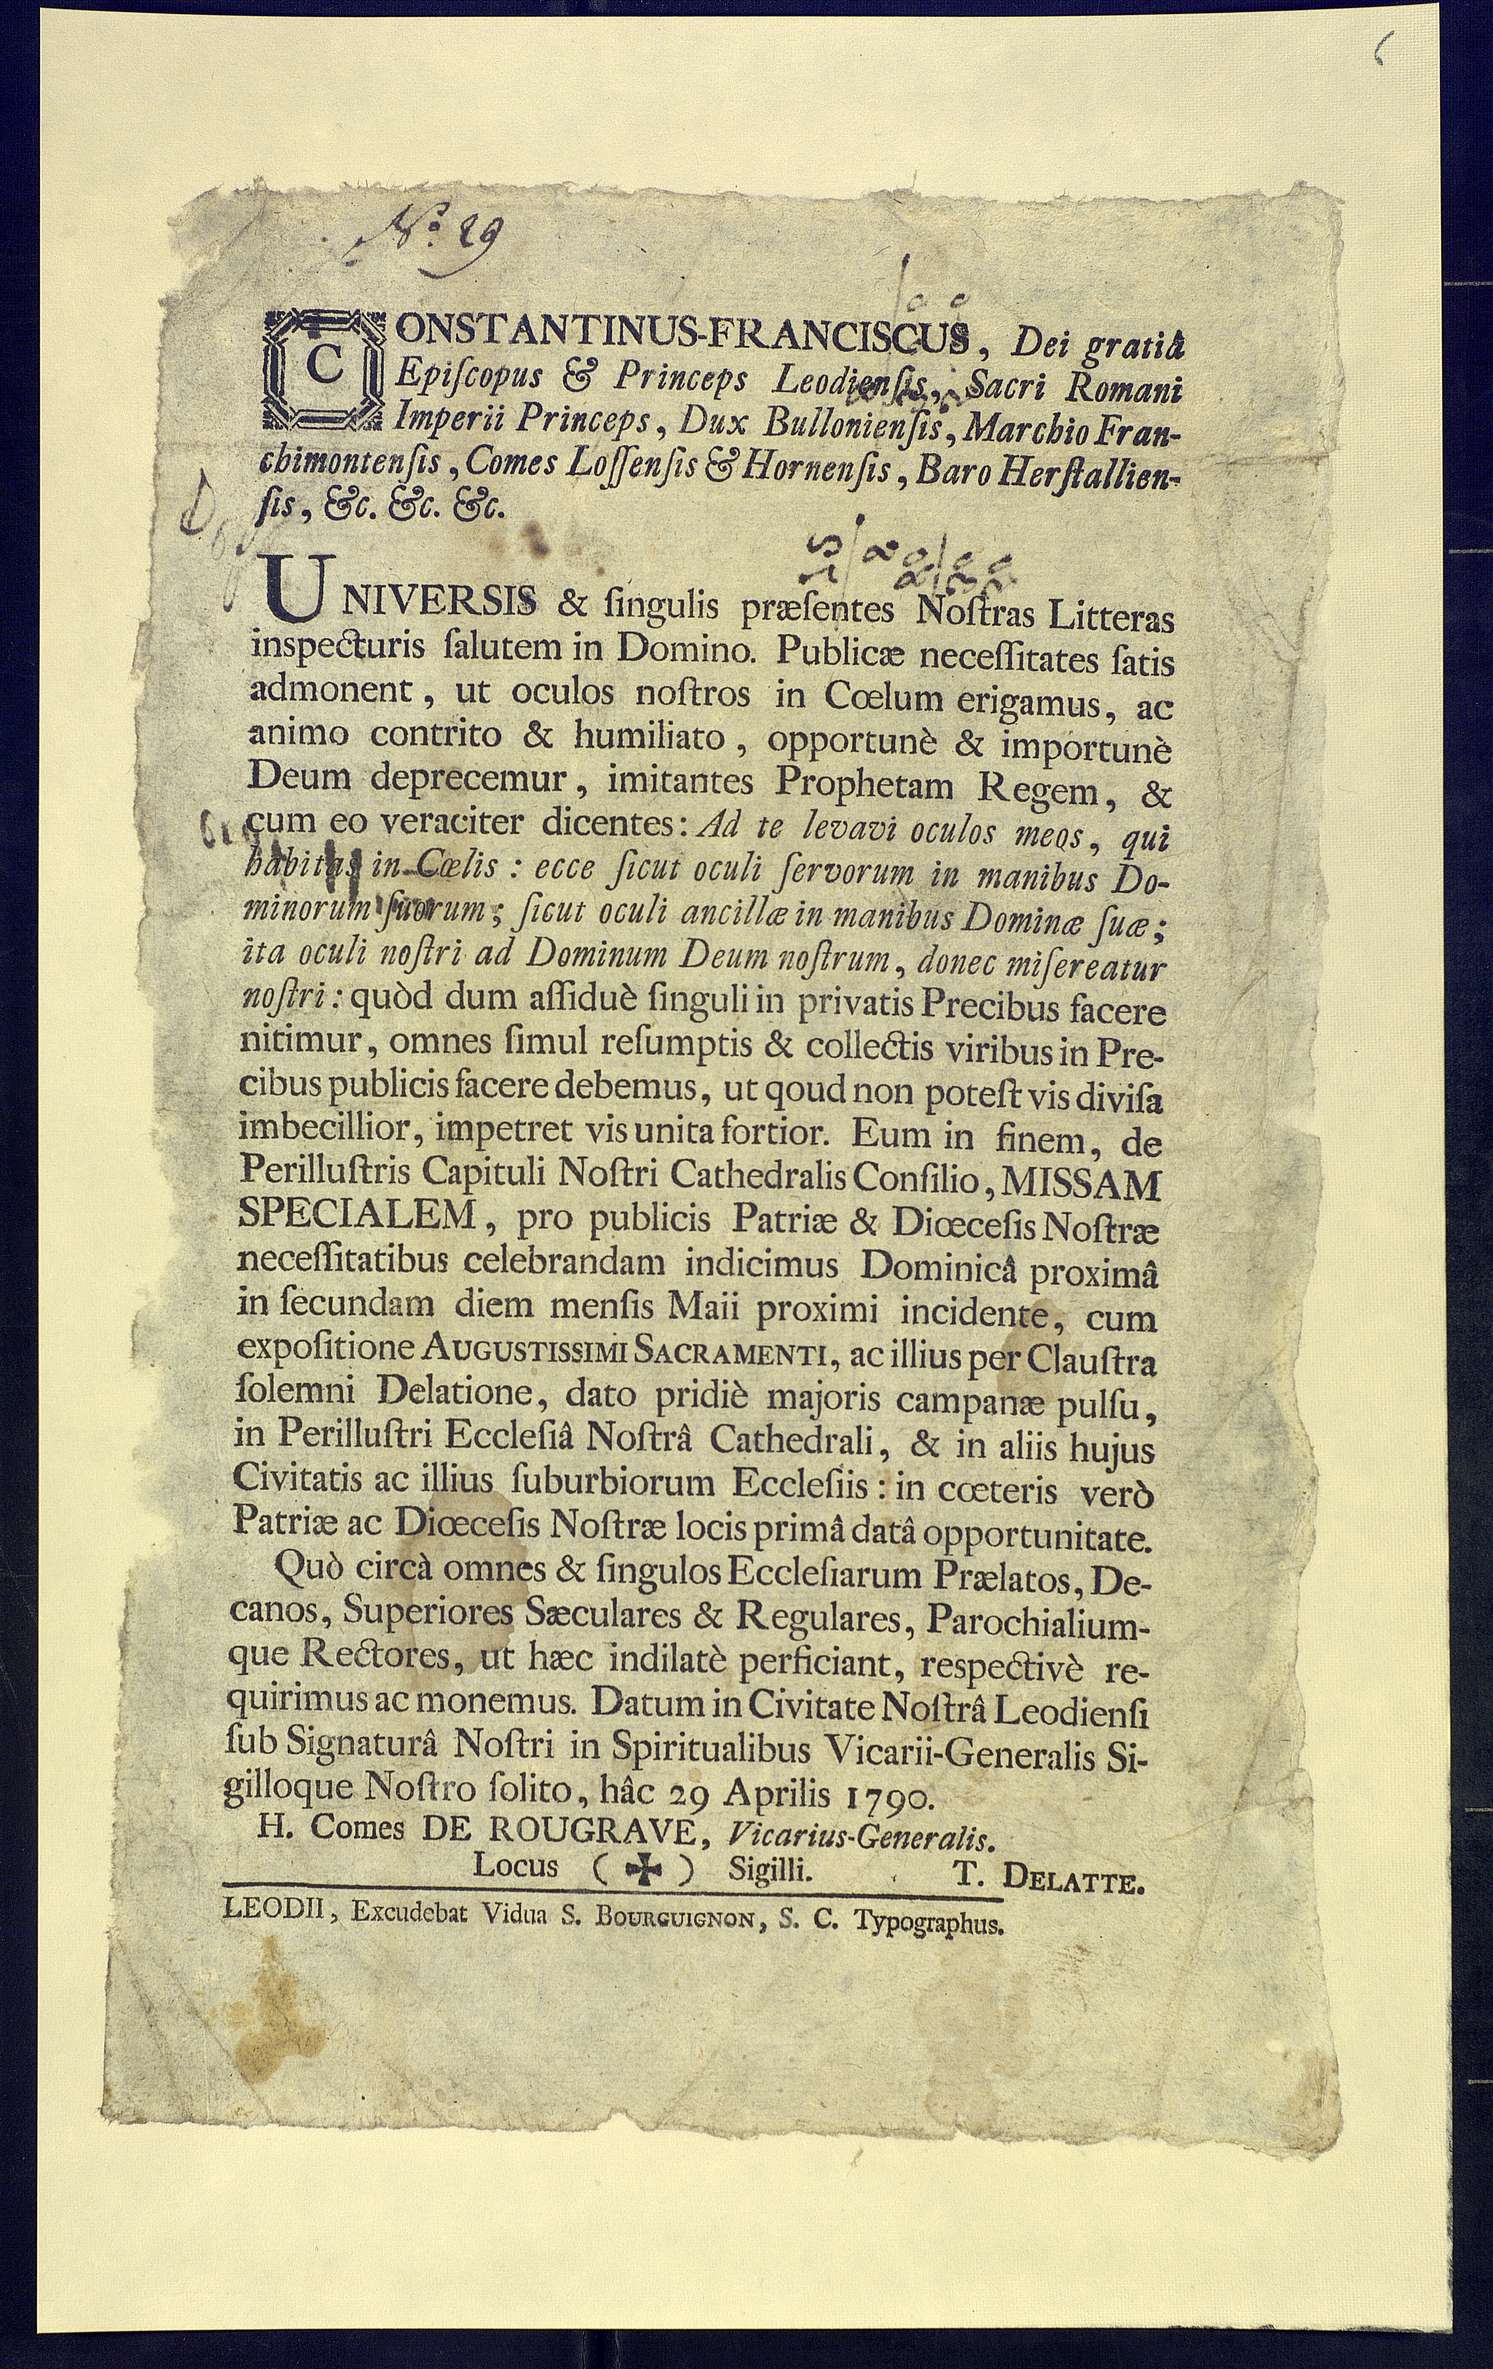 6
Nº. 29
CONSTANTINUS-FRANCISCUS, Dei gratiâ
Epiſcopus & Princeps Leodienſis, Sacri Romani
Imperii Princeps, Dux Bullonienſis, Marchio Fran-
chimontenſis, Comes Loſſenſis & Hornenſis, Baro Herſtallien-
ſis, &c. &c. &c.
UNIVERSIS & ſingulis præſentes Noſtras Litteras
inspecturis ſalutem in Domino. Publicæ neceſſitates ſatis
admonent, ut oculos noſtros in Cœlum erigamus, ac
animo contrito & humiliato, opportunè & importunè
Deum deprecemur, imitantes Prophetam Regem, &
cum eo veraciter dicentes: Ad te levavi oculos meos, qui
habitas in Cœlis: ecce ſicut oculi ſervorum in manibus Do-
minorum ſuorum; ſicut oculi ancillæ in manibus Dominæ ſuæ;
ita oculi noſtri ad Dominum Deum noſtrum, donec miſereatur
noſtri: quòd dum aſſiduè ſinguli in privatis Precibus facere
nitimur, omnes ſimul reſumptis & collectis viribus in Pre-
cibus publicis facere debemus, ut qoud non poteſt vis diviſa
imbecillior, impetret vis unita fortior. Eum in finem, de
Perilluſtris Capituli Noſtri Cathedralis Conſilio, MISSAM
SPECIALEM, pro publicis Patriæ & Diœceſis Noſtræ
neceſſitatibus celebrandam indicimus Dominicâ proximâ
in ſecundam diem menſis Maii proximi incidente, cum
expoſitione AUGUSTISSIMI SACRAMENTI, ac illius per Clauſtra
ſolemni Delatione, dato pridiè majoris campanæ pulſu,
in Perilluſtri Eccleſiâ Noſtrâ Cathedrali, & in aliis hujus
Civitatis ac illius ſuburbiorum Eccleſiis: in cœteris verò
Patriæ ac Diœceſis Noſtræ locis primâ datâ opportunitate.
Quò circà omnes & ſingulos Eccleſiarum Prælatos, De-
canos, Superiores Sæculares & Regulares, Parochialium-
que Rectores, ut hæc indilatè perficiant, respectivè re-
quirimus ac monemus. Datum in Civitate Noſtrâ Leodienſi
ſub Signaturâ Noſtri in Spiritualibus Vicarii-Generalis Si-
gilloque Noſtro ſolito, hâc 29 Aprilis 1790.
H. Comes DE ROUGRAVE, Vicarius-Generalis.
Locus (✠) Sigilli. T. DELATTE.
LEODII, Excudebat Vidua S. BOURGUIGNON, S. C. Typographus.